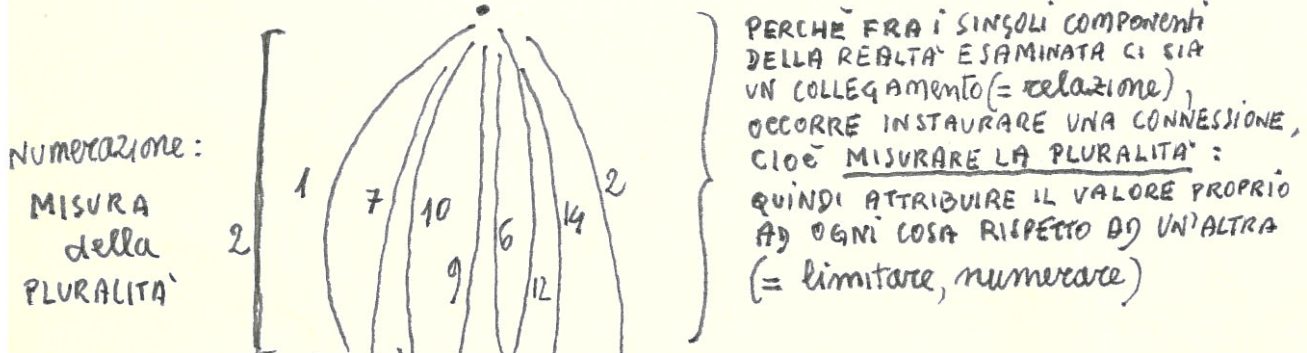 Numerazione:
MISURA
della
PLURALITA'
2
1
7
10
9
6
12
14
2
PERCHÈ FRA i SINGOLI COMPONENTI
DELLA REALTA' ESAMINATA CI SIA
UN COLLEGAMENTO (= relazione),
OCCORRE INSTAURARE UNA CONNESSIONE,
CIOÈ MISURARE LA PLURALITA':
QUINDI ATTRIBUIRE IL VALORE PROPRIO
AD OGNI COSA RISPETTO AD UN'ALTRA
(= limitare, numerare)